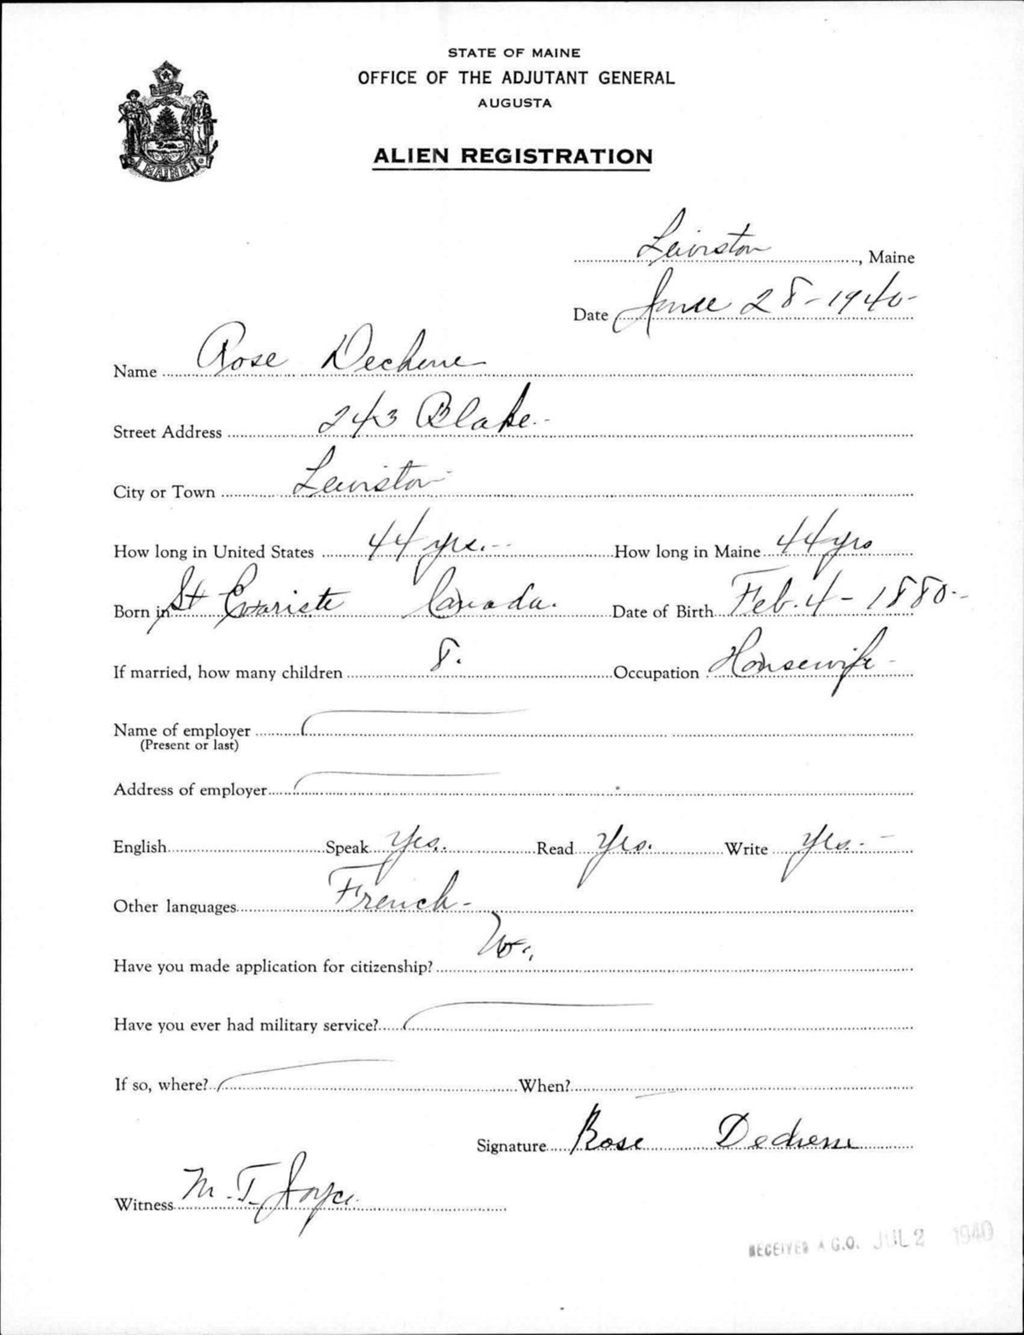 STATE OF MAINE
OFFICE OF THE ADJUTANT GENERAL
AUGUSTA
MAINE
ALIEN REGISTRATION
Lewiston, Maine
Date June 28-1940-
Name Rose Dechene
Street Address 243 Blake.-
City or Town Lewiston-
How long in United States 44 yrs.-- How long in Maine 44 yrs
Born in St Evariste Canada. Date of Birth Feb. 4 - 1880.-
If married, how many children 8. Occupation Housewife-
Name of employer
(Present or last)
Address of employer
English Speak Yes. Read Yes. Write Yes.-
Other languages French-
Have you made application for citizenship? No.
Have you ever had military service?
If so, where? When?
Signature Rose Dechene
Witness M. T. Joyce.
RECEIVED A.G.O. JUL 2 1940